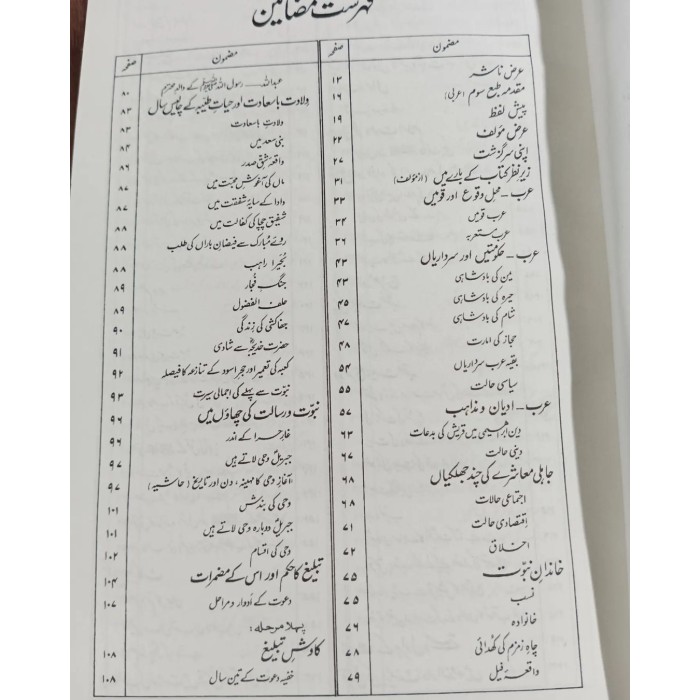 فہرست مضامین
مضمون صفحہ
عرض ناشر ۱۳
مقدمہ طبع سوم (عربی) ۱۶
پیش لفظ ۱۹
عرض مؤلف ۲۲
اپنی سرگزشت ۲۷
زیرِ نظر کتاب کے بارے میں (از مؤلف) ۳۱
عرب - محل وقوع اور قومیں ۳۳
عرب قومیں ۳۴
عرب مستعربہ ۳۶
عرب - حکومتیں اور سرداریاں ۴۳
یمن کی بادشاہی ۴۳
حیرہ کی بادشاہی ۴۵
شام کی بادشاہی ۴۷
حجاز کی امارت ۴۸
بقیہ عرب سرداریاں ۵۴
سیاسی حالت ۵۵
عرب - ادیان و مذاہب ۵۷
دین ابراہیمی میں قریش کی بدعات ۶۳
دینی حالت ۶۷
جاہلی معاشرے کی چند جھلکیاں ۶۸
اجتماعی حالات ۶۸
اقتصادی حالت ۷۱
اخلاق ۷۲
خاندانِ نبوّت ۷۵
نسب ۷۵
خانوادہ ۷۶
چاہِ زمزم کی کھدائی ۷۸
واقعۂ فیل ۷۹
مضمون صفحہ
عبداللہ — رسول اللہ ﷺ کے والد محترم ۸۰
ولادت باسعادت اور حیاتِ طیبہ کے چالیس سال ۸۳
ولادت باسعادت ۸۳
بنی سعد میں ۸۴
واقعہ شق صدر ۸۶
ماں کی آغوشِ محبّت میں ۸۷
دادا کے سایۂ شفقت میں ۸۷
شفیق چچا کی کفالت میں ۸۸
روئے مبارک سے فیضانِ باراں کی طلب ۸۸
بحیرا راہب ۸۸
جنگِ فجار ۸۹
حلف الفضول ۸۹
جفاکشی کی زندگی ۹۰
حضرت خدیجہؓ سے شادی ۹۱
کعبہ کی تعمیر اور حجرِ اسود کے تنازعہ کا فیصلہ ۹۲
نبوّت سے پہلے کی اجمالی سیرت ۹۳
نبوّت و رسالت کی چھاؤں میں ۹۶
غارِ حرا کے اندر ۹۶
جبریلؑ وحی لاتے ہیں ۹۷
آغازِ وحی کا مہینہ، دن اور تاریخ (حاشیہ) ۹۷
وحی کی بندش ۱۰۱
جبریلؑ دوبارہ وحی لاتے ہیں ۱۰۱
وحی کی اقسام ۱۰۲
تبلیغ کا حکم اور اس کے مضمرات ۱۰۴
دعوت کے ادوار و مراحل ۱۰۷
پہلا مرحلہ:
کاوشِ تبلیغ ۱۰۸
خفیہ دعوت کے تین سال ۱۰۸